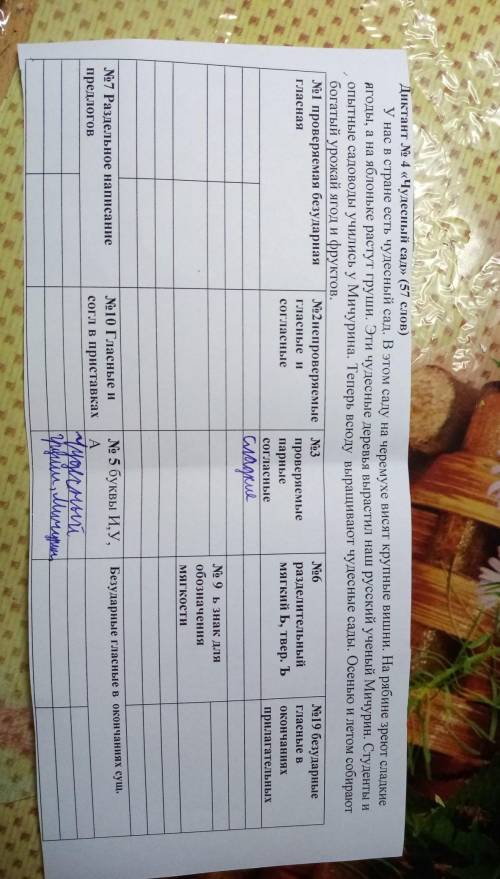 Диктант № 4 «Чудесный сад» (57 слов)
У нас в стране есть чудесный сад. В этом саду на черемухе висят крупные вишни. На рябине зреют сладкие
ягоды, а на яблоньке растут груши. Эти чудесные деревья вырастил наш русский ученый Мичурин. Студенты и
опытные садоводы учились у Мичурина. Теперь всюду выращивают чудесные сады. Осенью и летом собирают
богатый урожай ягод и фруктов.
№1 проверяемая безударная
гласная
№2непроверяемые
гласные и
согласные
№3
проверяемые
парные
согласные
№6
разделительный
мягкий Ь, твер. Ъ
№19 безударные
гласные в
окончаниях
прилагательных
сладкие
№ 9 ь знак для
обозначения
мягкости
№7 Раздельное написание
предлогов
№10 Гласные и
согл в приставках
№ 5 буквы И,У,
А
Безударные гласные в окончаниях сущ.
чудесный
груши, Мичурин